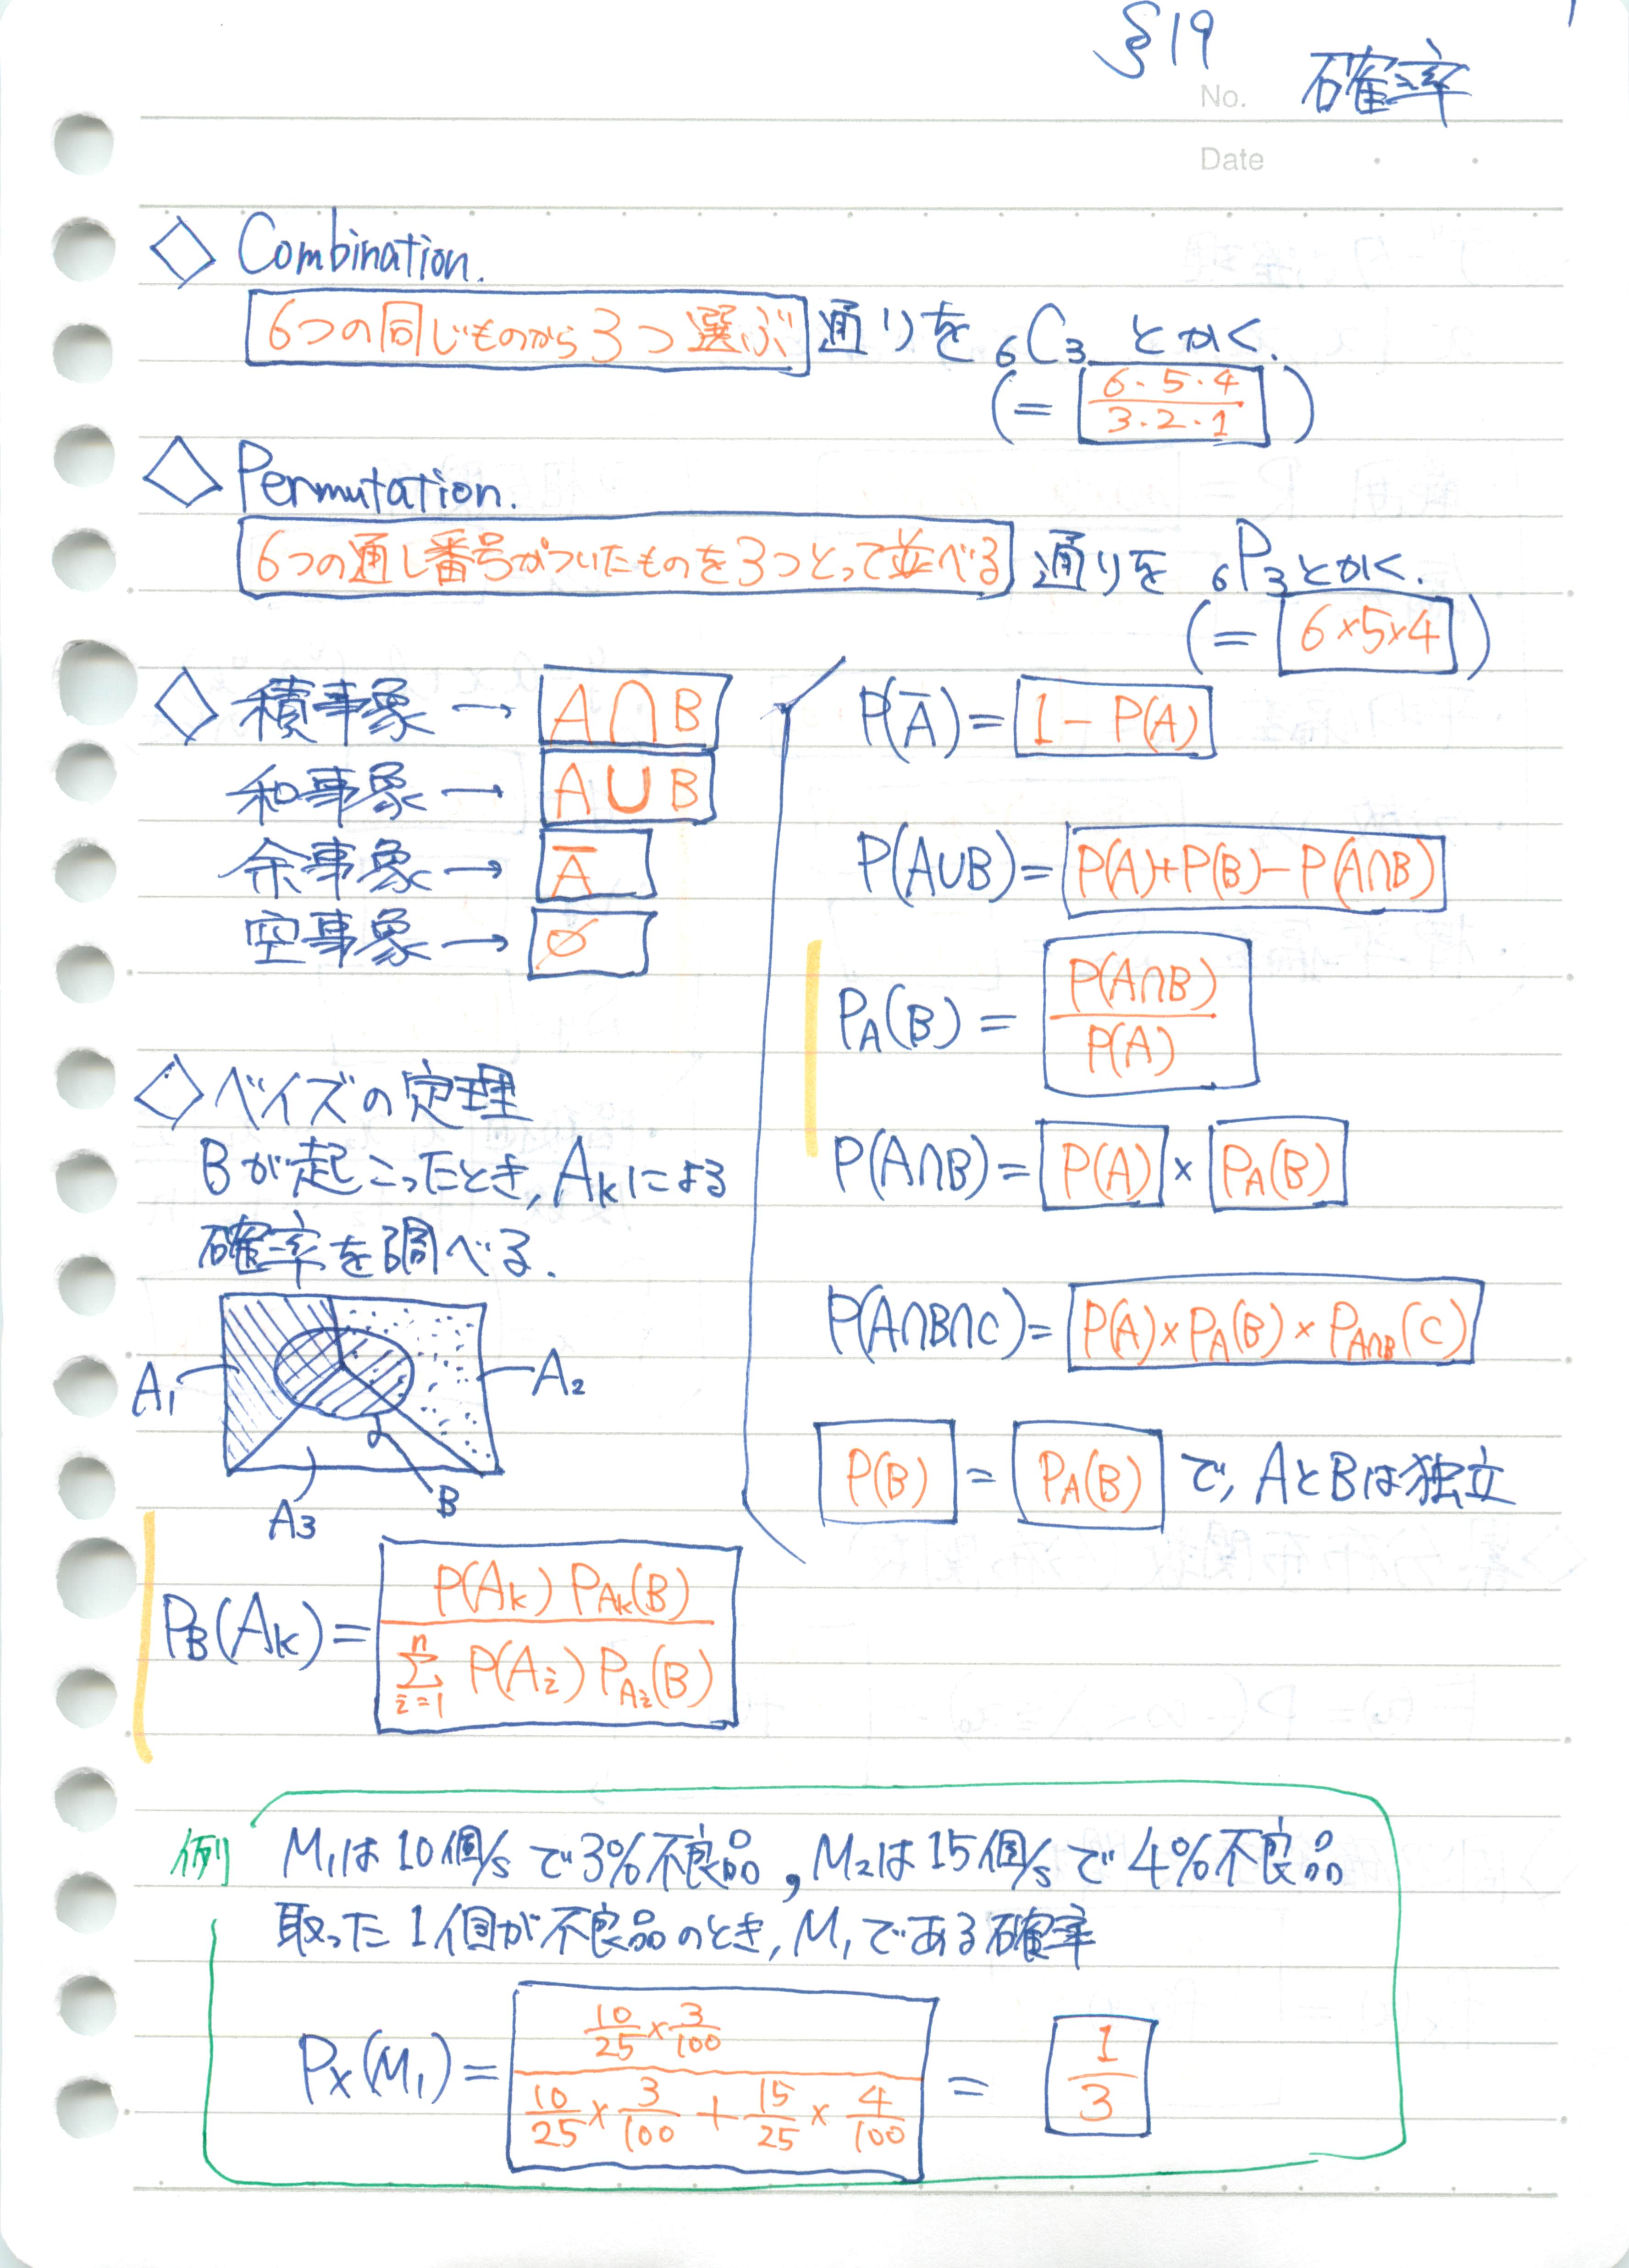 §19
確率
No.
Date
◇ Combination.
6つの同じものから3つ選ぶ 通りを ₆C₃ とかく.
(= 6・5・4 / 3・2・1 )
◇ Permutation.
6つの通し番号がついたものを3つとって並べる 通りを ₆P₃とかく.
(= 6×5×4 )
◇ 積事象 → A∩B
和事象 → A∪B
余事象 → A̅
空事象 → ∅
◇ ベイズの定理
Bが起こったとき, Akによる
確率を調べる.
A₁
A₂
A₃
B
P_B(A_k) = P(A_k) P_{A_k}(B) / Σ_{i=1}^{n} P(A_i) P_{A_i}(B)
P(A̅) = 1 - P(A)
P(A∪B) = P(A)+P(B)-P(A∩B)
P_A(B) = P(A∩B) / P(A)
P(A∩B) = P(A) × P_A(B)
P(A∩B∩C) = P(A)×P_A(B)×P_{A∩B}(C)
P(B) = P_A(B) で, AとBは独立
例 M₁は10個/sで3%不良品, M₂は15個/sで4%不良品
取った1個が不良品のとき, M₁である確率
P_X(M₁) = (10/25 × 3/100) / (10/25 × 3/100 + 15/25 × 4/100) = 1/3